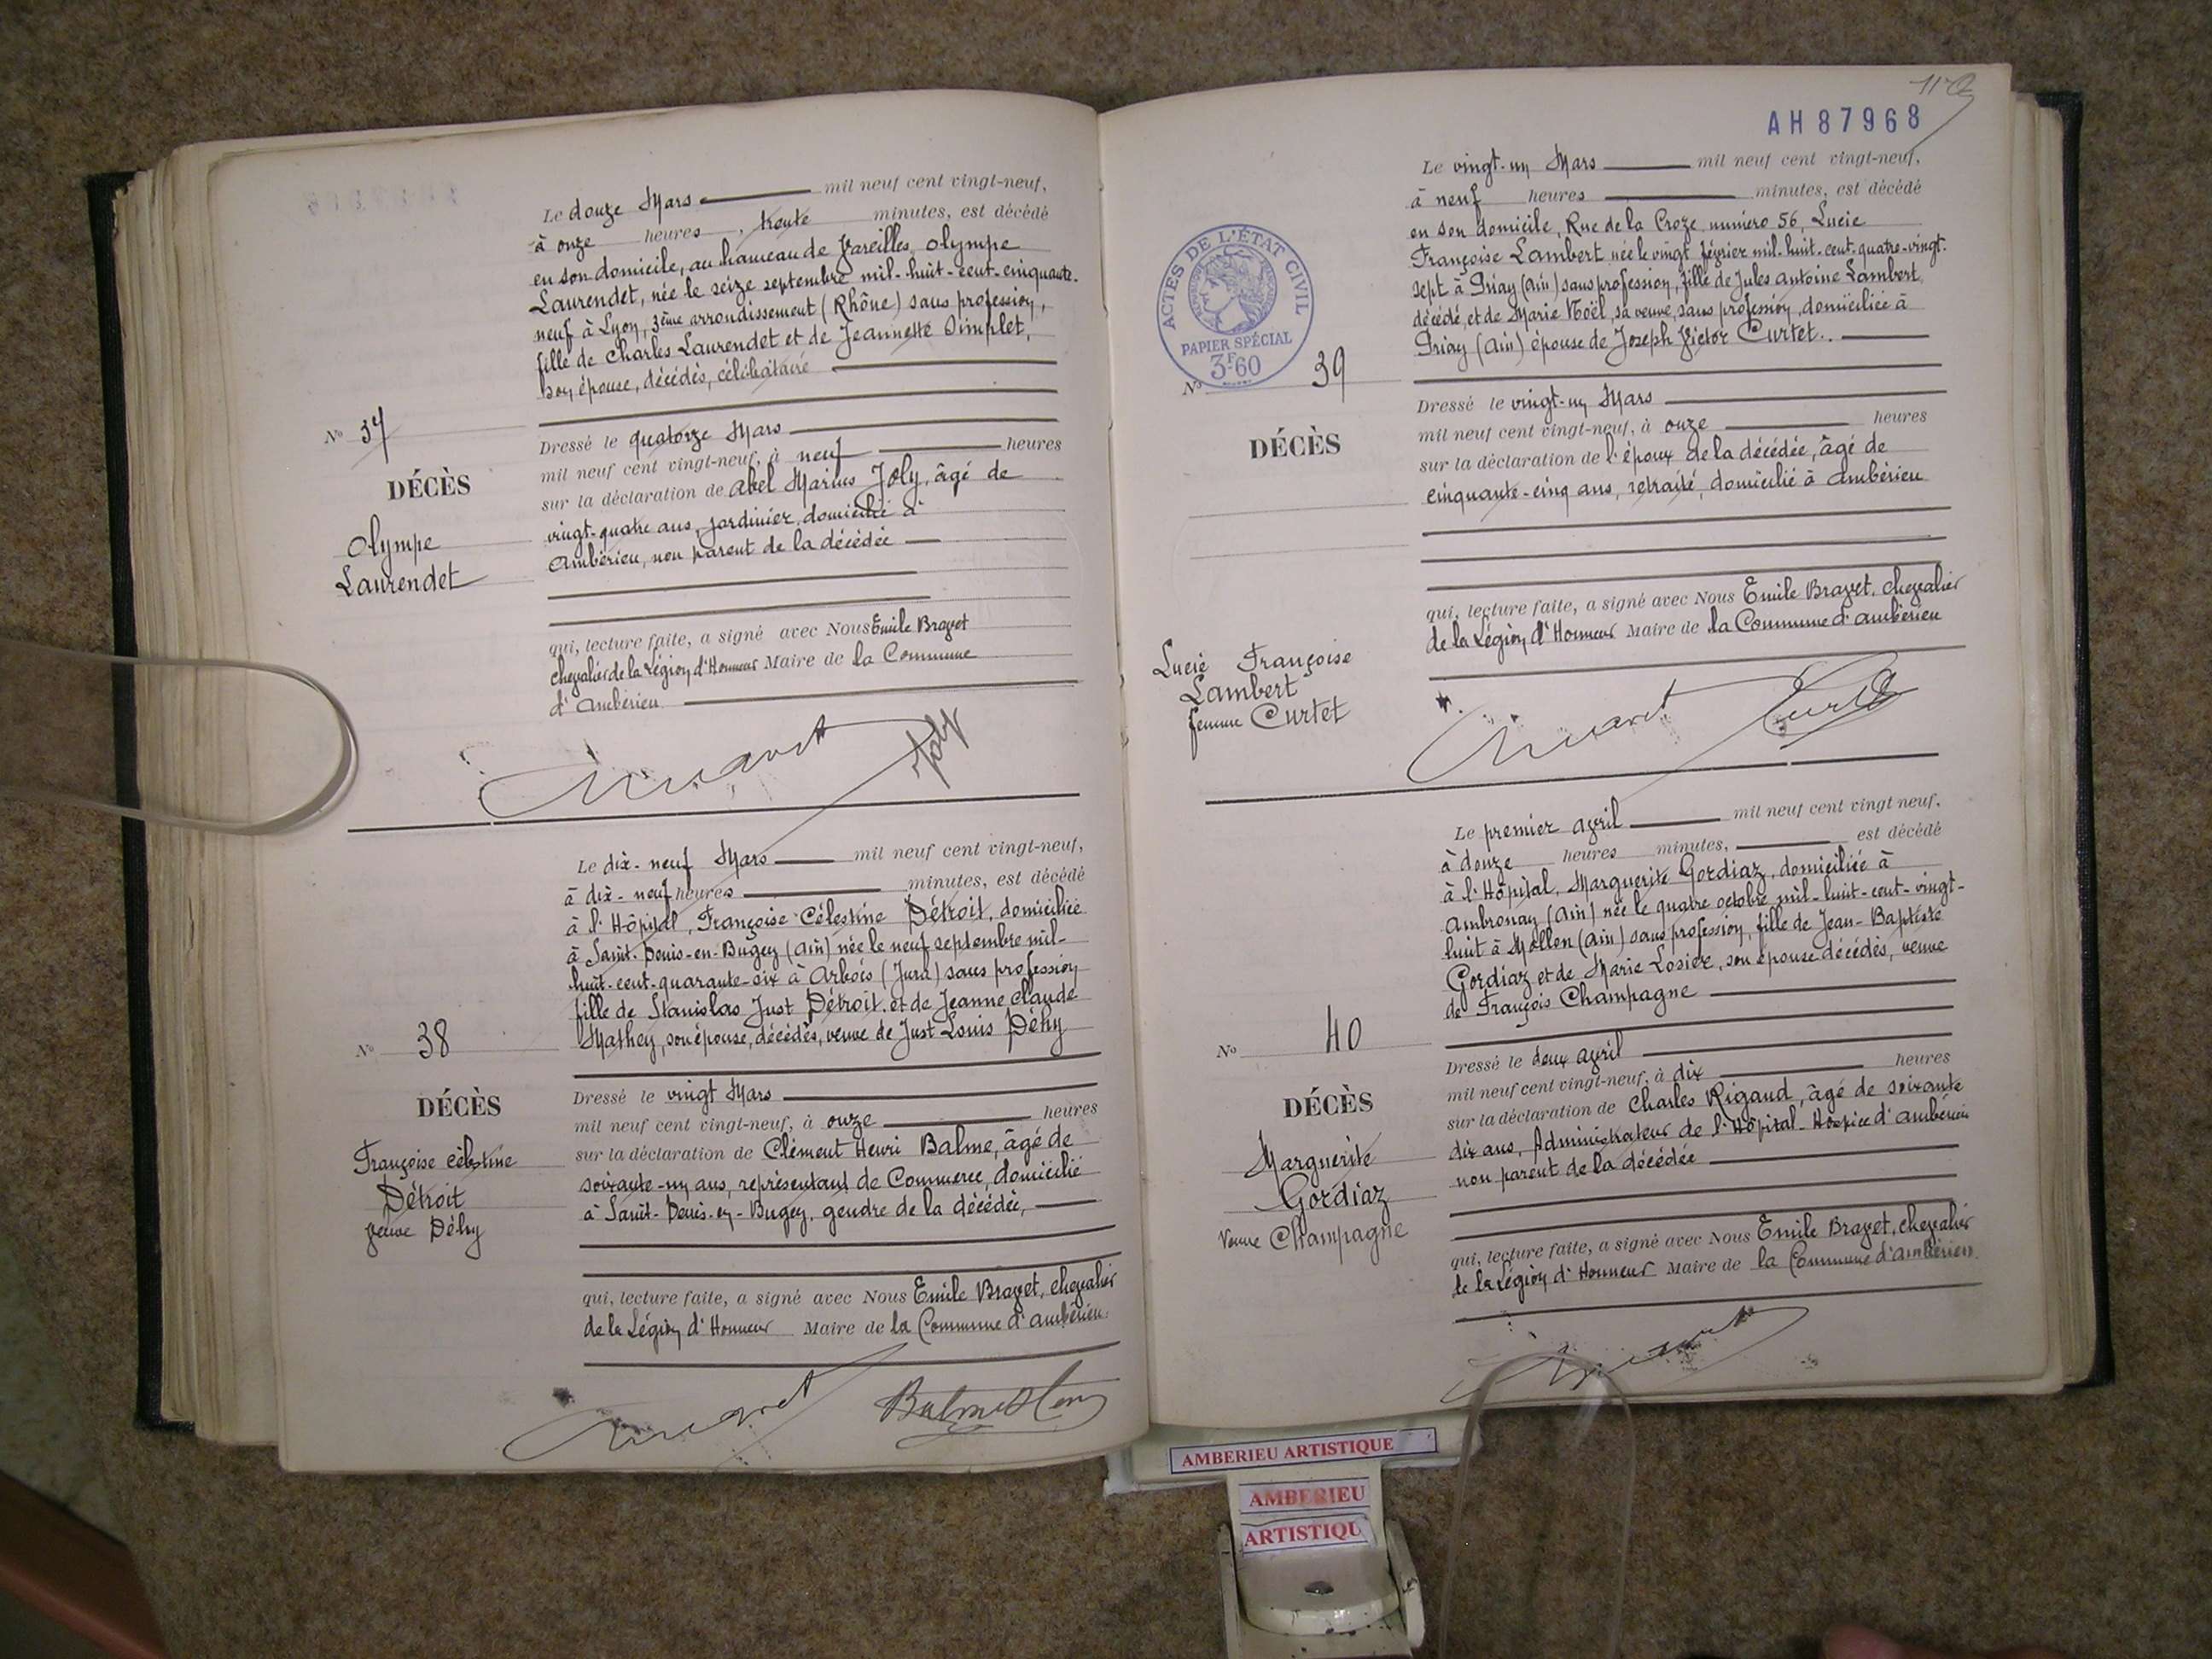 Le douze Mars mil neuf cent vingt-neuf,
à onze heures, trente minutes, est décédé
en son domicile, au hameau de Vareilles, Olympe
Laurendet, née le seize septembre mil-huit-cent-cinquante-
neuf à Lyon, 3ème arrondissement (Rhône) sans profession,
fille de Charles Laurendet et de Jeannette Simplet,
son épouse, décédés, célibataire
N° 37
DÉCÈS
Olympe
Laurendet
Dressé le quatorze Mars
mil neuf cent vingt-neuf, à neuf heures
sur la déclaration de Abel Marius Joly, âgé de
vingt-quatre ans, jardinier, domicilié à
Ambérieu, non parent de la décédée
qui, lecture faite, a signé avec Nous Emile Bravet
chevalier de la Légion d'Honneur Maire de la Commune
d'Ambérieu
Joly
Le dix-neuf Mars mil neuf cent vingt-neuf,
à dix-neuf heures minutes, est décédé
à l'Hôpital, Françoise Célestine Détroit, domiciliée
à Saint-Denis-en-Bugey (Ain) née le neuf septembre mil-
huit-cent-quarante-six à Arbois (Jura) sans profession
fille de Stanislas Just Détroit et de Jeanne Claude
Mathey, son épouse, décédés, veuve de Just Louis Déhy
N° 38
DÉCÈS
Françoise Célestine
Détroit
veuve Déhy
Dressé le vingt Mars
mil neuf cent vingt-neuf, à onze heures
sur la déclaration de Clément Henri Balme, âgé de
soixante-un ans, représentant de Commerce, domicilié
à Saint-Denis-en-Bugey, gendre de la décédée,
qui, lecture faite, a signé avec Nous Emile Bravet, chevalier
de la Légion d'Honneur Maire de la Commune d'Ambérieu
AH 87968
ACTES DE L'ÉTAT CIVIL
PAPIER SPÉCIAL
3F60
Le vingt-un Mars mil neuf cent vingt-neuf,
à neuf heures minutes, est décédé
en son domicile, Rue de la Croze, numéro 56, Lucie
Françoise Lambert née le vingt février mil-huit-cent-quatre-vingt-
sept à Priay (Ain) sans profession, fille de Jules Antoine Lambert,
décédé, et de Marie Noël, sa veuve, sans profession, domiciliée à
Priay (Ain) épouse de Joseph Victor Curtet.
N° 39
DÉCÈS
Lucie Françoise
Lambert
femme Curtet
Dressé le vingt-un Mars
mil neuf cent vingt-neuf, à onze heures
sur la déclaration de l'époux de la décédée, âgé de
cinquante-cinq ans, retraité, domicilié à Ambérieu
qui, lecture faite, a signé avec Nous Emile Bravet, chevalier
de la Légion d'Honneur Maire de la Commune d'Ambérieu
Le premier avril mil neuf cent vingt neuf,
à douze heures minutes, est décédé
à l'Hôpital, Marguerite Gordiaz, domiciliée à
Ambronay (Ain) née le quatre octobre mil-huit-cent-vingt-
huit à Mollon (Ain) sans profession, fille de Jean-Baptiste
Gordiaz et de Marie Losier, son épouse décédés, veuve
de François Champagne
N° 40
DÉCÈS
Marguerite
Gordiaz
Veuve Champagne
Dressé le deux avril
mil neuf cent vingt-neuf, à dix heures
sur la déclaration de Charles Rigaud, âgé de soixante
dix ans, Administrateur de l'Hôpital-Hospice d'Ambérieu
non parent de la décédée
qui, lecture faite, a signé avec Nous Emile Bravet, chevalier
de la Légion d'Honneur Maire de la Commune d'Ambérieu
AMBERIEU ARTISTIQUE
AMBERIEU
ARTISTIQU